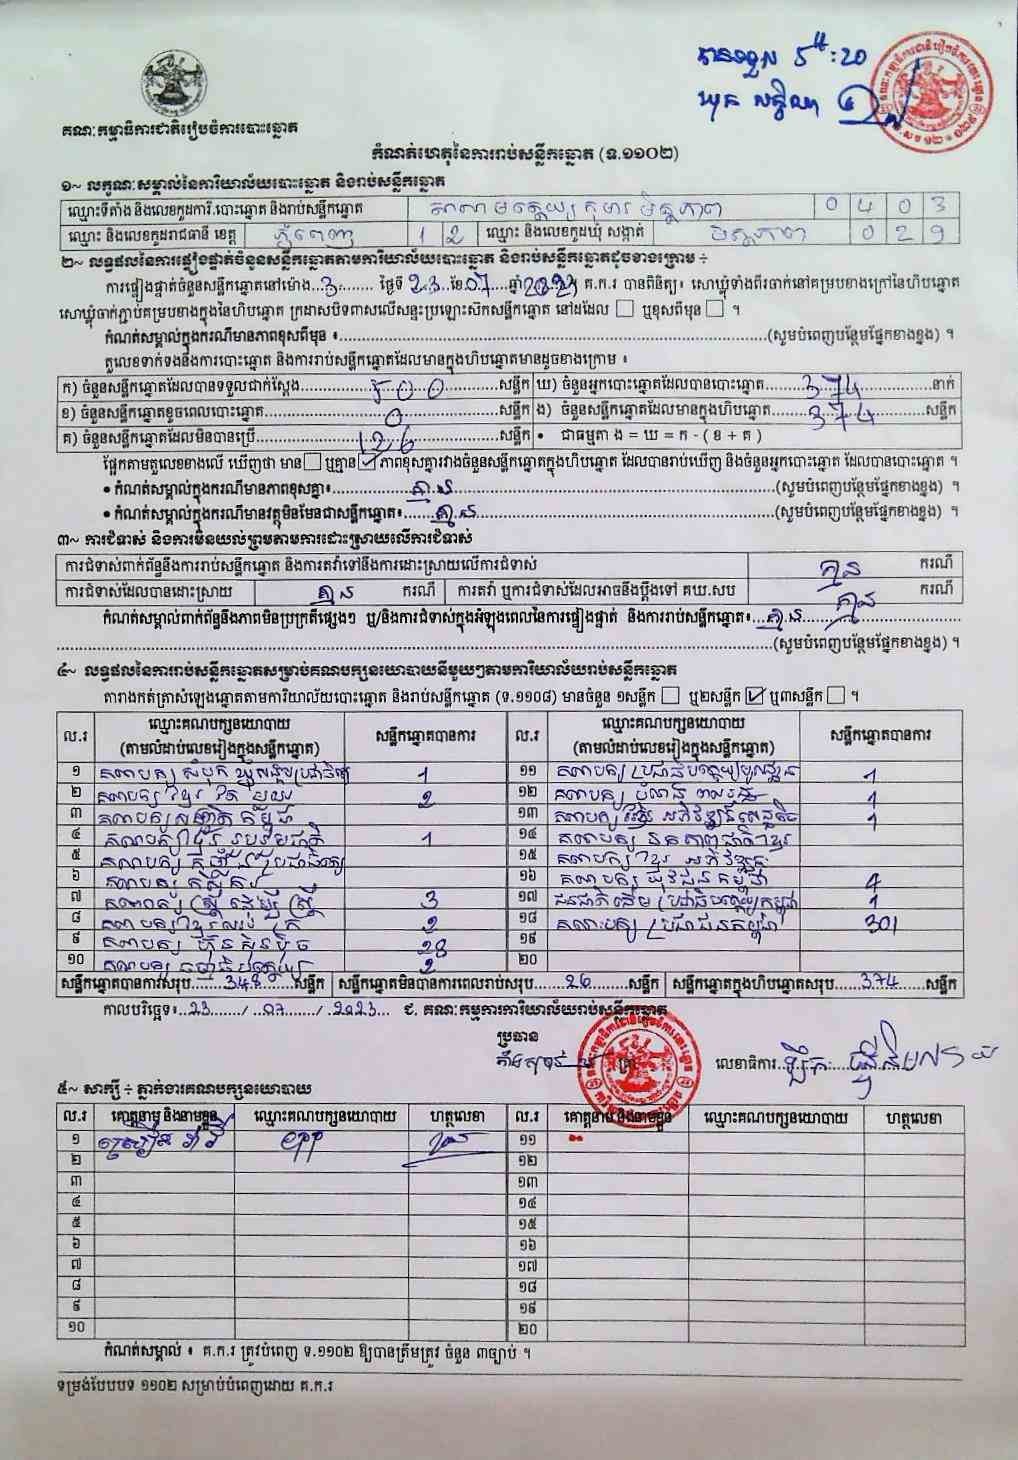 បានទទួល 5 : 20
គណៈកម្មាធិការជាតិរៀបចំការបោះឆ្នោត
កំណត់ហេតុនៃការរាប់សន្លឹកឆ្នោត (ទ.១១០២)
១~ លក្ខណៈសម្គាល់នៃការិយាល័យបោះឆ្នោត និងរាប់សន្លឹកឆ្នោត
ឈ្មោះទីតាំង និងលេខកូដការិ.បោះឆ្នោត និងរាប់សន្លឹកឆ្នោត សាលាមត្តេយ្យកុមារមិត្តភាព 0 4 0 3
ឈ្មោះ និងលេខកូដរាជធានី ខេត្ត ភ្នំពេញ 1 2 ឈ្មោះ និងលេខកូដឃុំ សង្កាត់ មិត្តភាព 0 2 9
២~ លទ្ធផលនៃការផ្ទៀងផ្ទាត់ចំនួនសន្លឹកឆ្នោតតាមការិយាល័យបោះឆ្នោត និងរាប់សន្លឹកឆ្នោតដូចខាងក្រោម ÷
ការផ្ទៀងផ្ទាត់ចំនួនសន្លឹកឆ្នោតនៅម៉ោង...3:....... ថ្ងៃទី 23 ខែ 07 ឆ្នាំ 2023 គ.ក.រ បានពិនិត្យ៖ សោឃ្លុំទាំងពីរចាក់នៅគម្របខាងក្រៅនៃហិបឆ្នោត
សោឃ្លុំចាក់ភ្ជាប់គម្របខាងក្នុងនៃហិបឆ្នោត ក្រដាសបិទពាសលើសន្ទះប្រឡោះស៊កសន្លឹកឆ្នោត នៅដដែល ☐ ឬខុសពីមុន ☐ ។
កំណត់សម្គាល់ក្នុងករណីមានភាពខុសពីមុន ៖ (សូមបំពេញបន្ថែមផ្នែកខាងខ្នង) ។
តួលេខទាក់ទងនឹងការបោះឆ្នោត និងការរាប់សន្លឹកឆ្នោតដែលមានក្នុងហិបឆ្នោតមានដូចខាងក្រោម ៖
ក) ចំនួនសន្លឹកឆ្នោតដែលបានទទួលជាក់ស្តែង 500 សន្លឹក ឃ) ចំនួនអ្នកបោះឆ្នោតដែលបានបោះឆ្នោត 374 នាក់
ខ) ចំនួនសន្លឹកឆ្នោតខូចពេលបោះឆ្នោត 0 សន្លឹក ង) ចំនួនសន្លឹកឆ្នោតដែលមានក្នុងហិបឆ្នោត 374 សន្លឹក
គ) ចំនួនសន្លឹកឆ្នោតដែលមិនបានប្រើ 126 សន្លឹក • ជាធម្មតា ង = ឃ = ក - ( ខ + គ )
ផ្អែកតាមតួលេខខាងលើ ឃើញថា មាន ☐ ឬគ្មាន ☑ ភាពខុសគ្នារវាងចំនួនសន្លឹកឆ្នោតក្នុងហិបឆ្នោត ដែលបានរាប់ឃើញ និងចំនួនអ្នកបោះឆ្នោត ដែលបានបោះឆ្នោត ។
• កំណត់សម្គាល់ក្នុងករណីមានភាពខុសគ្នា៖ គ្មាន (សូមបំពេញបន្ថែមផ្នែកខាងខ្នង) ។
• កំណត់សម្គាល់ក្នុងករណីមានវត្ថុមិនមែនជាសន្លឹកឆ្នោត៖ គ្មាន (សូមបំពេញបន្ថែមផ្នែកខាងខ្នង) ។
៣~ ការជំទាស់ និងការមិនយល់ព្រមតាមការដោះស្រាយលើការជំទាស់
ការជំទាស់ពាក់ព័ន្ធនឹងការរាប់សន្លឹកឆ្នោត និងការតវ៉ាទៅនឹងការដោះស្រាយលើការជំទាស់ គ្មាន ករណី
ការជំទាស់ដែលបានដោះស្រាយ គ្មាន ករណី ការតវ៉ា ឬការជំទាស់ដែលអាចនឹងប្តឹងទៅ គឃ.សប គ្មាន ករណី
កំណត់សម្គាល់ពាក់ព័ន្ធនឹងភាពមិនប្រក្រតីផ្សេងៗ ឬ/និងការជំទាស់ក្នុងអំឡុងពេលនៃការផ្ទៀងផ្ទាត់ និងការរាប់សន្លឹកឆ្នោត៖ គ្មាន
(សូមបំពេញបន្ថែមផ្នែកខាងខ្នង) ។
៤~ លទ្ធផលនៃការរាប់សន្លឹកឆ្នោតសម្រាប់គណបក្សនយោបាយនីមួយៗតាមការិយាល័យរាប់សន្លឹកឆ្នោត
តារាងកត់ត្រាសំឡេងឆ្នោតតាមការិយាល័យបោះឆ្នោត និងរាប់សន្លឹកឆ្នោត (ទ.១១០៨) មានចំនួន ១សន្លឹក ☐ ឬ២សន្លឹក ☑ ឬ៣សន្លឹក ☐ ។
ល.រ ឈ្មោះគណបក្សនយោបាយ (តាមលំដាប់លេខរៀងក្នុងសន្លឹកឆ្នោត) សន្លឹកឆ្នោតបានការ ល.រ ឈ្មោះគណបក្សនយោបាយ (តាមលំដាប់លេខរៀងក្នុងសន្លឹកឆ្នោត) សន្លឹកឆ្នោតបានការ
១ គណបក្ស សំបុកឃ្មុំសង្គមប្រជាធិបតេយ្យ 1 ១១ គណបក្ស ប្រជាធិបតេយ្យមូលដ្ឋាន 1
២ គណបក្ស ខ្មែរតែមួយ 2 ១២ គណបក្ស 1
៣ គណបក្ស កម្ពុជា ១៣ គណបក្ស ខ្មែរអភិវឌ្ឍន៍សេដ្ឋកិច្ច 1
៤ គណបក្ស ខ្មែររួបរួមជាតិ 1 ១៤ គណបក្ស ឯកភាពជាតិខ្មែរ
៥ គណបក្ស កម្ពុជា ១៥ គណបក្ស ខ្មែរអភិរក្ស
៦ គណបក្ស កសិករ ១៦ គណបក្ស យុវជនកម្ពុជា
៧ គណបក្ស ស្ត្រីដើម្បីស្ត្រី 3 ១៧ ជនជាតិដើមប្រជាធិបតេយ្យកម្ពុជា 1
៨ គណបក្ស ខ្មែរឈប់ក្រ 2 ១៨ គណបក្ស ប្រជាជនកម្ពុជា 301
៩ គណបក្ស ហ៊្វុនស៊ិនប៉ិច 28 ១៩
១០ គណបក្ស ធម្មាធិបតេយ្យ 2 ២០
សន្លឹកឆ្នោតបានការសរុប 348 សន្លឹក សន្លឹកឆ្នោតមិនបានការពេលរាប់សរុប 26 សន្លឹក សន្លឹកឆ្នោតក្នុងហិបឆ្នោតសរុប 374 សន្លឹក
កាលបរិច្ឆេទ៖ 23 / 07 / 2023 ជ. គណៈកម្មការការិយាល័យរាប់សន្លឹកឆ្នោត
ប្រធាន
លេខាធិការ
៥~ សាក្សី ÷ ភ្នាក់ងារគណបក្សនយោបាយ
ល.រ គោត្តនាម និងនាមខ្លួន ឈ្មោះគណបក្សនយោបាយ ហត្ថលេខា ល.រ គោត្តនាម និងនាមខ្លួន ឈ្មោះគណបក្សនយោបាយ ហត្ថលេខា
១ cpp ១១
២ ១២
៣ ១៣
៤ ១៤
៥ ១៥
៦ ១៦
៧ ១៧
៨ ១៨
៩ ១៩
១០ ២០
កំណត់សម្គាល់ ៖ គ.ក.រ ត្រូវបំពេញ ទ.១១០២ ឱ្យបានត្រឹមត្រូវ ចំនួន ៣ច្បាប់ ។
ទម្រង់បែបបទ ១១០២ សម្រាប់បំពេញដោយ គ.ក.រ